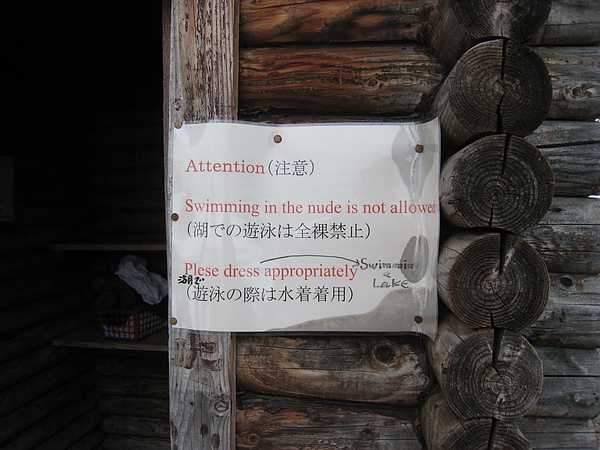 Attention(注意)
Swimming in the nude is not allowed
(湖での遊泳は全裸禁止)
Plese dress appropriately Swimming
湖で Lake
(遊泳の際は水着着用)